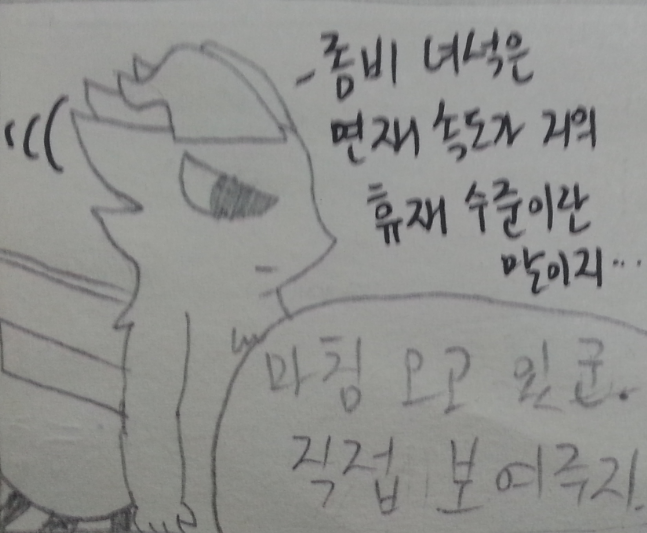 -좀비 녀석은
연재 속도가 거의
휴재 수준이란
말이지...
마침 오고 있군.
직접 보여주지.